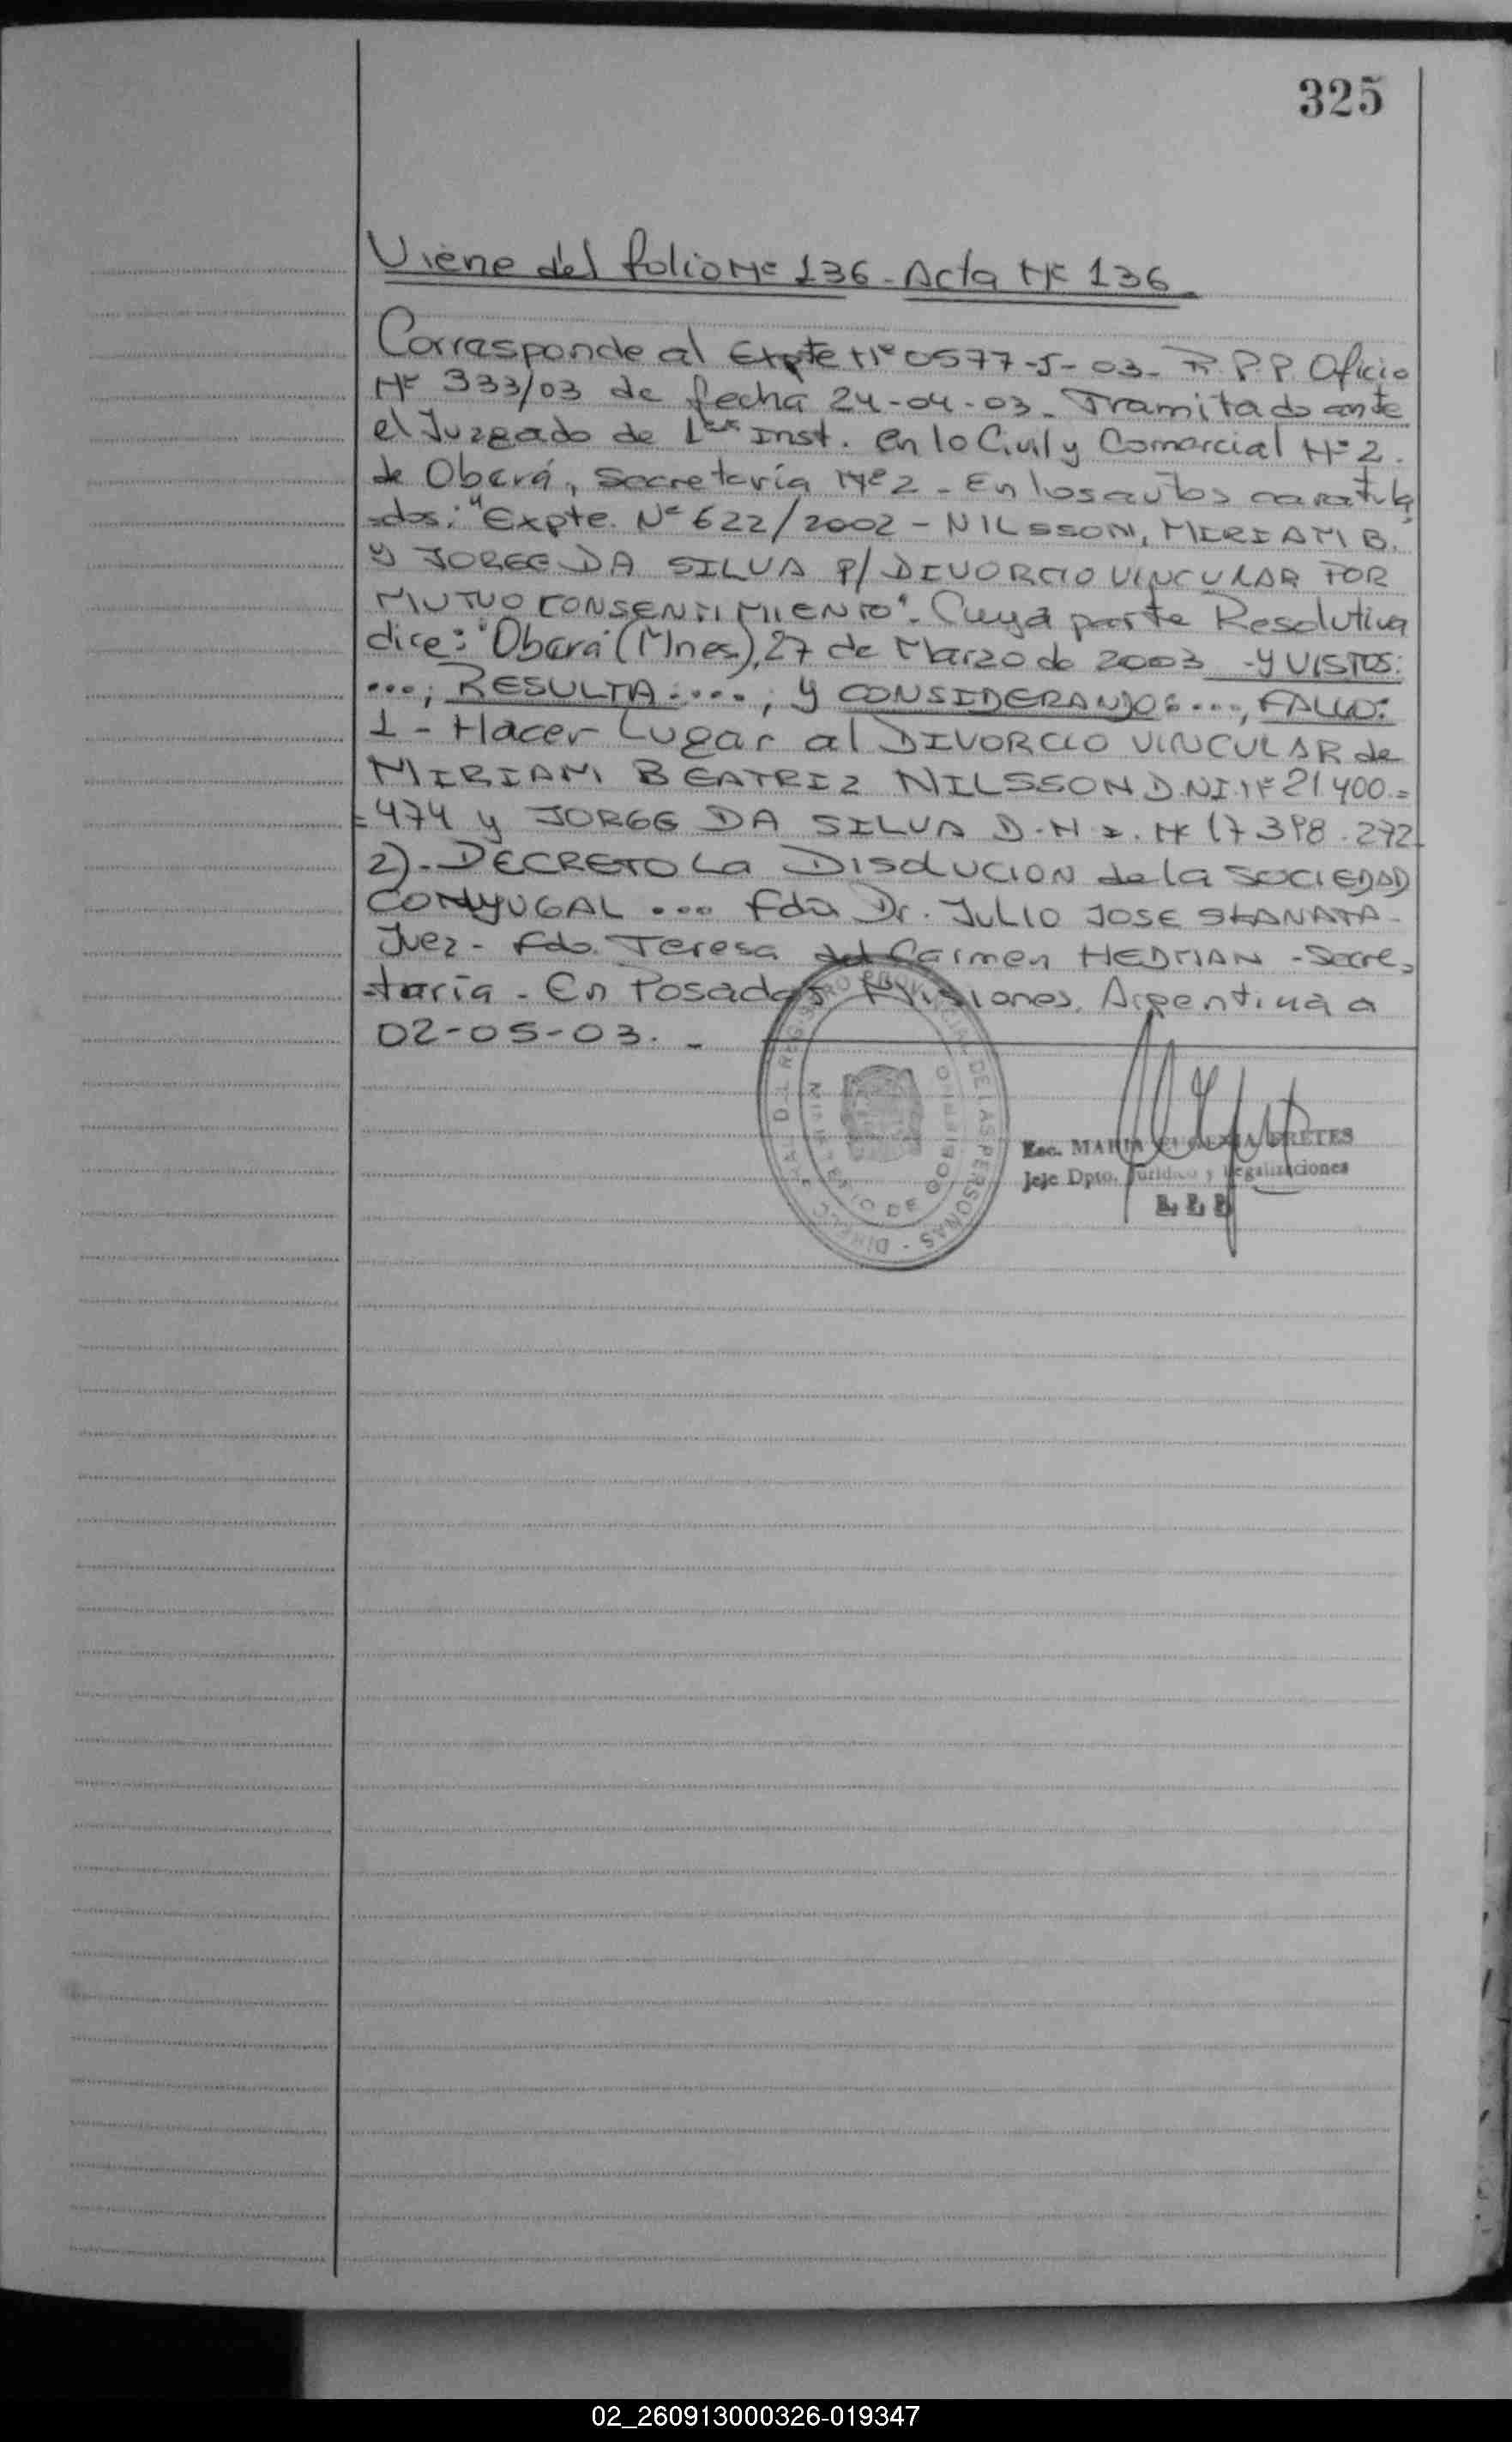 325
Viene del folio Nº 136 - Acta Nº 136
Corresponde al Expte Nº 0577-J-03- R.P.P. Oficio
Nº 333/03 de fecha 24-04-03. Tramitado ante
el Juzgado de 1era Inst. en lo Civil y Comercial Nº 2.
de Oberá, Secretaría Nº 2 - En los autos caratula
-dos: "Expte. Nº 622/2002 - NILSSON, MIRIAM B.
y JORGE DA SILVA P/ DIVORCIO VINCULAR POR
MUTUO CONSENTIMIENTO". Cuya parte Resolutiva
dice: "Oberá (Mnes), 27 de Marzo de 2003 - Y VISTOS:
...; RESULTA: ...; y CONSIDERANDO: ..., FALLO:
1 - Hacer Lugar al DIVORCIO VINCULAR de
MIRIAM BEATRIZ NILSSON D.NI. Nº 21.400.=
=474 y JORGE DA SILVA D.N.I. Nº 17.398.272.
2)- DECRETO La DISOLUCION de la SOCIEDAD
CONYUGAL ... Fdo Dr. JULIO JOSE
Juez - Fdo. Teresa del Carmen HEDMAN - Secre=
-taria - En Posadas Misiones, Argentina a
02-05-03. -
REGISTRO PROVINCIAL DE LAS PERSONAS
MINISTERIO DE GOBIERNO
Esc. MARIA EUGENIA BRETES
Jefe Dpto. Jurídico y Legalizaciones
02_260913000326-019347